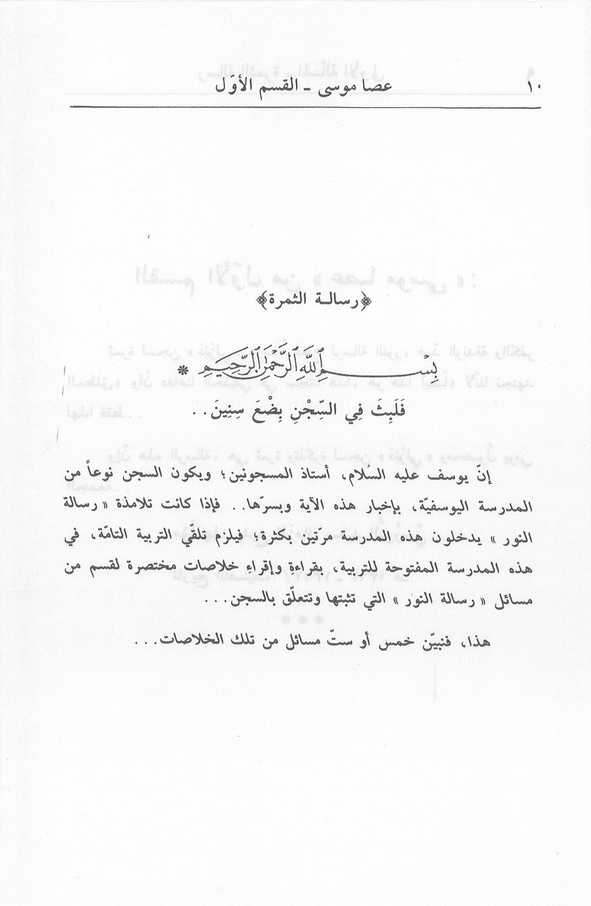 ١٠
عصا موسى ـ القسم الأوّل
﴿رسالة الثمرة﴾
بِسْمِ اللَّهِ الرَّحْمَنِ الرَّحِيمِ *
فَلَبِثَ فِي السِّجْنِ بِضْعَ سِنِينَ. .
إنّ يوسف عليه السّلام، أستاذ المسجونين؛ ويكون السجن نوعاً من
المدرسة اليوسفيّة، بإخبار هذه الآية وبسرّها. . فإذا كانت تلامذة « رسالة
النور » يدخلون هذه المدرسة مرّتين بكثرة؛ فيلزم تلقّي التربية التامّة، في
هذه المدرسة المفتوحة للتربية، بقراءةِ وإقراءِ خلاصات مختصرة لقسم من
مسائل « رسالة النور » التي تثبتها وتتعلّق بالسجن. . .
هذا، فنبيّن خمس أو ستّ مسائل من تلك الخلاصات. . .